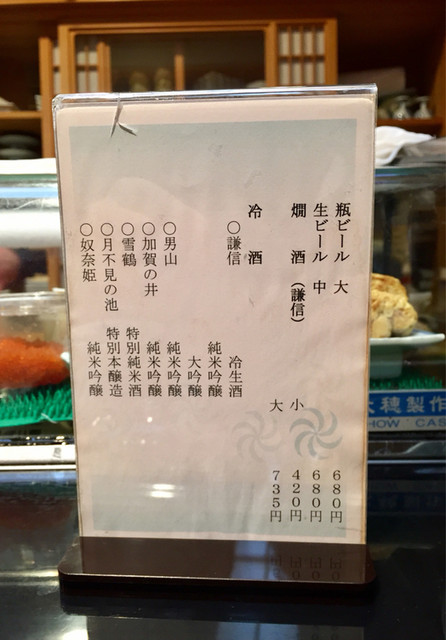 瓶ビール 大 680円
生ビール 中 680円
燗 酒 (謙信) 小 420円
大 735円
冷 酒
○謙信 冷生酒
純米吟醸
大吟醸
○男山 純米吟醸
○加賀の井 純米吟醸
○雪鶴 特別純米酒
○月不見の池 特別本醸造
○奴奈姫 純米吟醸
大穂製作
HOW CAS